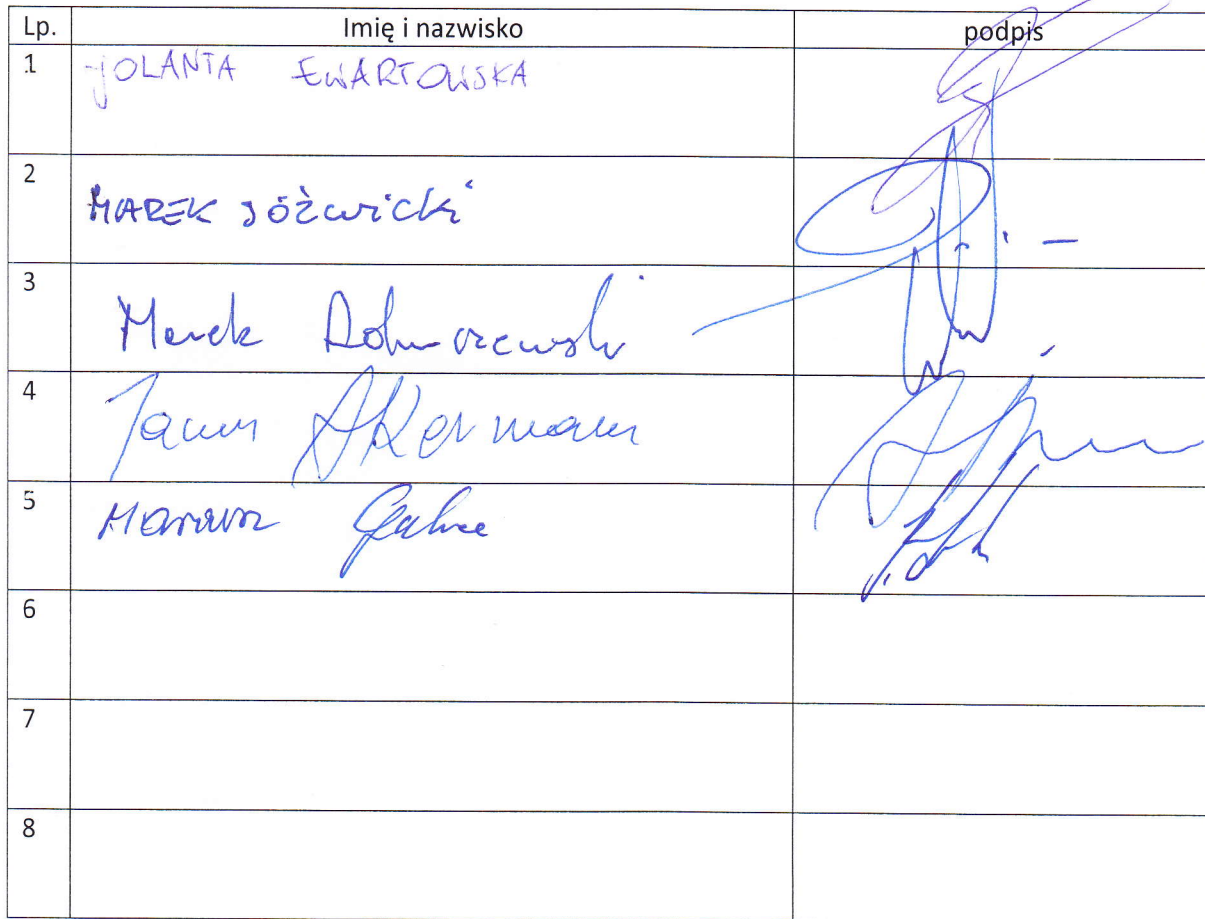 Lp. Imię i nazwisko podpis
1 JOLANTA EWARTOWSKA
2 MAREK JÓŹWICKI
3 Marek
4 Janusz Akerman
5 Mariusz
6
7
8